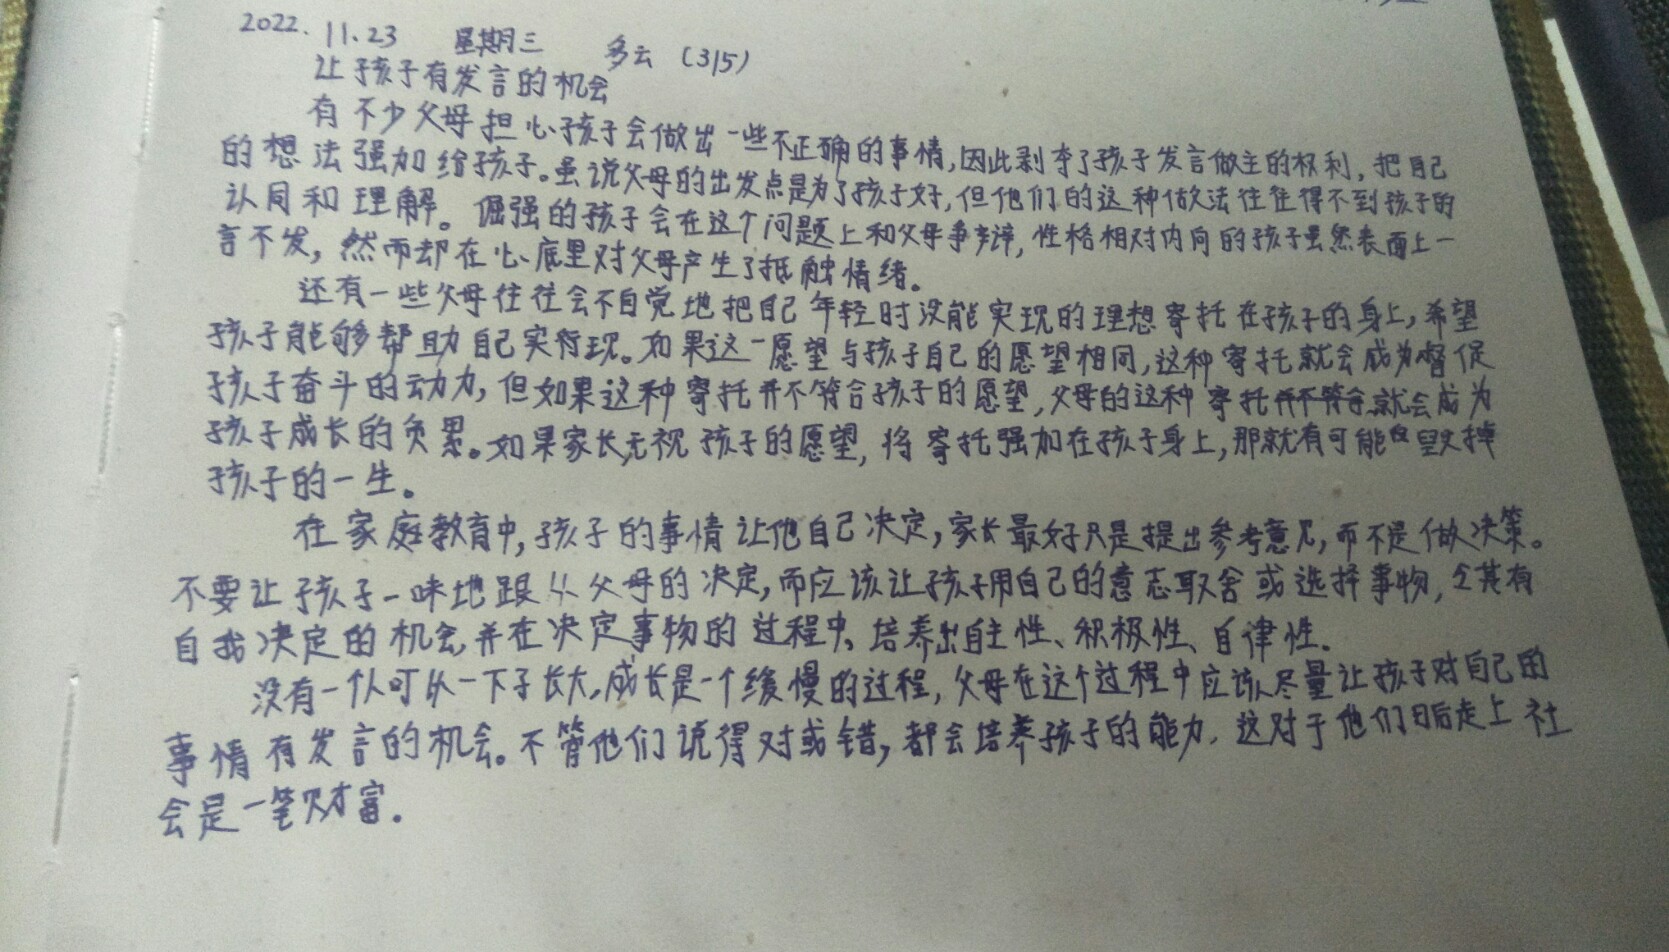 2022. 11.23 星期三 多云 (315)
让孩子有发言的机会
有不少父母担心孩子会做出一些不正确的事情,因此剥夺了孩子发言做主的权利,把自己
的想法强加给孩子。虽说父母的出发点是为了孩子好,但他们的这种做法往往得不到孩子的
认同和理解。倔强的孩子会在这个问题上和父母争辩,性格相对内向的孩子虽然表面上一
言不发,然而却在心底里对父母产生了抵触情绪。
还有一些父母往往会不自觉地把自己年轻时没能实现的理想寄托在孩子的身上,希望
孩子能够帮助自己实现。如果这一愿望与孩子自己的愿望相同,这种寄托就会成为督促
孩子奋斗的动力,但如果这种寄托并不符合孩子的愿望,父母的这种寄托就会成为
孩子成长的负累。如果家长无视孩子的愿望,将寄托强加在孩子身上,那就有可能毁掉
孩子的一生。
在家庭教育中,孩子的事情让他自己决定,家长最好只是提出参考意见,而不是做决策。
不要让孩子一味地跟从父母的决定,而应该让孩子用自己的意志取舍或选择事物,令其有
自我决定的机会,并在决定事物的过程中、培养出自主性、积极性、自律性.
没有一个人可以一下子长大,成长是一个缓慢的过程,父母在这个过程中应该尽量让孩子对自己的
事情有发言的机会。不管他们说得对或错,都会培养孩子的能力.这对于他们日后走上社
会是一笔财富.